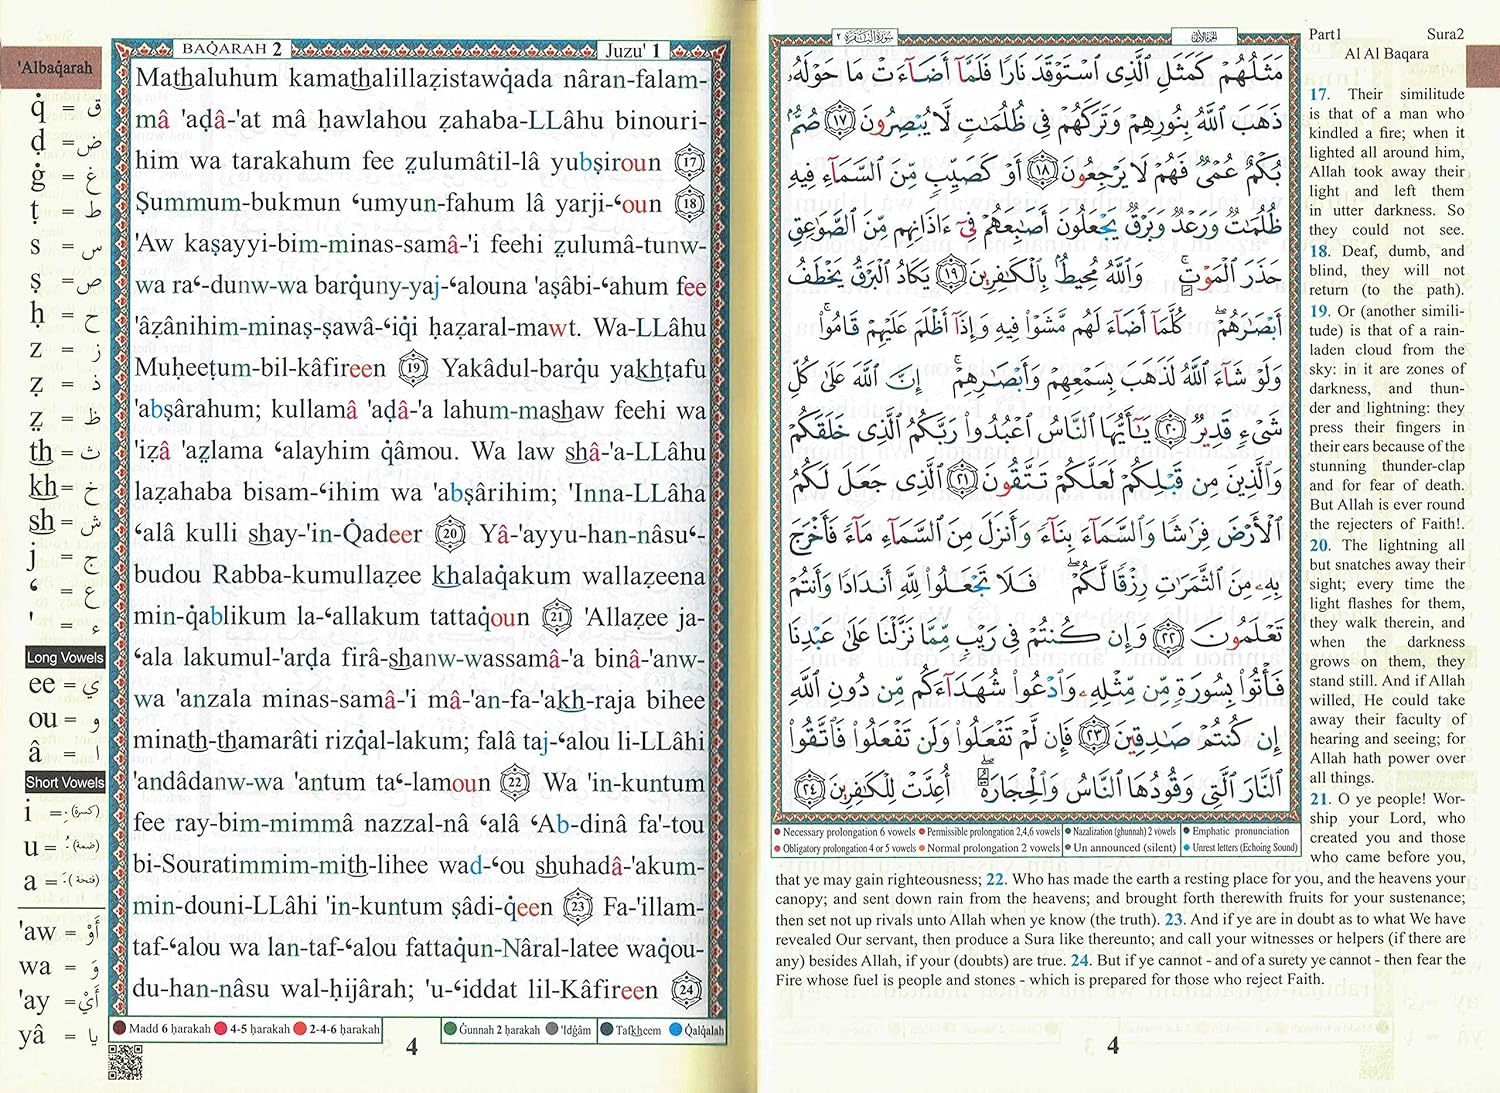 'Albaq̇arah
q̇ = ق
ḍ = ض
ġ = غ
ṭ = ط
s = س
ṣ = ص
ḥ = ح
z = ز
ẓ = ذ
ẓ = ظ
th = ث
kh = خ
sh = ش
j = ج
ʻ = ع
' = ء
Long Vowels
ee = ي
ou = و
â = ا
Short Vowels
i = ـِ (كسرة)
u = ـُ (ضمة)
a = ـَ (فتحة)
'aw = أَوْ
wa = وَ
'ay = أَيْ
yâ = يا
BAQ̇ARAH 2
Juzu' 1
Mathaluhum kamathalillaẓistawq̇ada nâran-falam-
mâ 'aḍâ-'at mâ ḥawlahou ẓahaba-LLâhu binouri-
him wa tarakahum fee ẓulumâtil-lâ yubṣiroun 17
Ṣummum-bukmun ʻumyun-fahum lâ yarji-ʻoun 18
'Aw kaṣayyi-bim-minas-samâ-'i feehi ẓulumâ-tunw-
wa raʻ-dunw-wa barq̇uny-yaj-ʻalouna 'aṣâbi-ʻahum fee
'âẓânihim-minaṣ-ṣawâ-ʻiq̇i ḥaẓaral-mawt. Wa-LLâhu
Muḥeeṭum-bil-kâfireen 19 Yakâdul-barq̇u yakhṭafu
'abṣârahum; kullamâ 'aḍâ-'a lahum-mashaw feehi wa
'iẓâ 'aẓlama ʻalayhim q̇âmou. Wa law shâ-'a-LLâhu
laẓahaba bisam-ʻihim wa 'abṣârihim; 'Inna-LLâha
ʻalâ kulli shay-'in-Q̇adeer 20 Yâ-'ayyu-han-nâsuʻ-
budou Rabba-kumullaẓee khalaq̇akum wallaẓeena
min-q̇ablikum la-ʻallakum tattaq̇oun 21 'Allaẓee ja-
ʻala lakumul-'arḍa firâ-shanw-wassamâ-'a binâ-'anw-
wa 'anzala minas-samâ-'i mâ-'an-fa-'akh-raja bihee
minath-thamarâti rizq̇al-lakum; falâ taj-ʻalou li-LLâhi
'andâdanw-wa 'antum taʻ-lamoun 22 Wa 'in-kuntum
fee ray-bim-mimmâ nazzal-nâ ʻalâ ʻAb-dinâ fa'-tou
bi-Souratimmim-mith-lihee wad-ʻou shuhadâ-'akum-
min-douni-LLâhi 'in-kuntum ṣâdi-q̇een 23 Fa-'illam-
taf-ʻalou wa lan-taf-ʻalou fattaq̇un-Nâral-latee waq̇ou-
du-han-nâsu wal-ḥijârah; 'u-ʻiddat lil-Kâfireen 24
Madd 6 ḥarakah 4-5 ḥarakah 2-4-6 ḥarakah
Ġunnah 2 ḥarakah 'Idġâm Tafkheem Q̇alq̇alah
4
سُورَةُ البَقَرَةِ ٢
الجزء الأول
مَثَلُهُمْ كَمَثَلِ ٱلَّذِى ٱسْتَوْقَدَ نَارًا فَلَمَّآ أَضَآءَتْ مَا حَوْلَهُۥ
ذَهَبَ ٱللَّهُ بِنُورِهِمْ وَتَرَكَهُمْ فِى ظُلُمَٰتٍ لَّا يُبْصِرُونَ ١٧ صُمٌّۢ
بُكْمٌ عُمْىٌ فَهُمْ لَا يَرْجِعُونَ ١٨ أَوْ كَصَيِّبٍ مِّنَ ٱلسَّمَآءِ فِيهِ
ظُلُمَٰتٌ وَرَعْدٌ وَبَرْقٌ يَجْعَلُونَ أَصَٰبِعَهُمْ فِىٓ ءَاذَانِهِم مِّنَ ٱلصَّوَٰعِقِ
حَذَرَ ٱلْمَوْتِ ۚ وَٱللَّهُ مُحِيطٌۢ بِٱلْكَٰفِرِينَ ١٩ يَكَادُ ٱلْبَرْقُ يَخْطَفُ
أَبْصَٰرَهُمْ ۖ كُلَّمَآ أَضَآءَ لَهُم مَّشَوْا۟ فِيهِ وَإِذَآ أَظْلَمَ عَلَيْهِمْ قَامُوا۟ ۚ
وَلَوْ شَآءَ ٱللَّهُ لَذَهَبَ بِسَمْعِهِمْ وَأَبْصَٰرِهِمْ ۚ إِنَّ ٱللَّهَ عَلَىٰ كُلِّ
شَىْءٍ قَدِيرٌ ٢٠ يَٰٓأَيُّهَا ٱلنَّاسُ ٱعْبُدُوا۟ رَبَّكُمُ ٱلَّذِى خَلَقَكُمْ
وَٱلَّذِينَ مِن قَبْلِكُمْ لَعَلَّكُمْ تَتَّقُونَ ٢١ ٱلَّذِى جَعَلَ لَكُمُ
ٱلْأَرْضَ فِرَٰشًا وَٱلسَّمَآءَ بِنَآءً وَأَنزَلَ مِنَ ٱلسَّمَآءِ مَآءً فَأَخْرَجَ
بِهِۦ مِنَ ٱلثَّمَرَٰتِ رِزْقًا لَّكُمْ ۖ فَلَا تَجْعَلُوا۟ لِلَّهِ أَندَادًا وَأَنتُمْ
تَعْلَمُونَ ٢٢ وَإِن كُنتُمْ فِى رَيْبٍ مِّمَّا نَزَّلْنَا عَلَىٰ عَبْدِنَا
فَأْتُوا۟ بِسُورَةٍ مِّن مِّثْلِهِۦ وَٱدْعُوا۟ شُهَدَآءَكُم مِّن دُونِ ٱللَّهِ
إِن كُنتُمْ صَٰدِقِينَ ٢٣ فَإِن لَّمْ تَفْعَلُوا۟ وَلَن تَفْعَلُوا۟ فَٱتَّقُوا۟
ٱلنَّارَ ٱلَّتِى وَقُودُهَا ٱلنَّاسُ وَٱلْحِجَارَةُ ۖ أُعِدَّتْ لِلْكَٰفِرِينَ ٢٤
Necessary prolongation 6 vowels Permissible prolongation 2,4,6 vowels Nazalization (ghunnah) 2 vowels Emphatic pronunciation
Obligatory prolongation 4 or 5 vowels Normal prolongation 2 vowels Un announced (silent) Unrest letters (Echoing Sound)
Part1 Sura2
Al Al Baqara
17. Their similitude
is that of a man who
kindled a fire; when it
lighted all around him,
Allah took away their
light and left them
in utter darkness. So
they could not see.
18. Deaf, dumb, and
blind, they will not
return (to the path).
19. Or (another simili-
tude) is that of a rain-
laden cloud from the
sky: in it are zones of
darkness, and thun-
der and lightning: they
press their fingers in
their ears because of the
stunning thunder-clap
and for fear of death.
But Allah is ever round
the rejecters of Faith!.
20. The lightning all
but snatches away their
sight; every time the
light flashes for them,
they walk therein, and
when the darkness
grows on them, they
stand still. And if Allah
willed, He could take
away their faculty of
hearing and seeing; for
Allah hath power over
all things.
21. O ye people! Wor-
ship your Lord, who
created you and those
who came before you,
that ye may gain righteousness; 22. Who has made the earth a resting place for you, and the heavens your
canopy; and sent down rain from the heavens; and brought forth therewith fruits for your sustenance;
then set not up rivals unto Allah when ye know (the truth). 23. And if ye are in doubt as to what We have
revealed Our servant, then produce a Sura like thereunto; and call your witnesses or helpers (if there are
any) besides Allah, if your (doubts) are true. 24. But if ye cannot - and of a surety ye cannot - then fear the
Fire whose fuel is people and stones - which is prepared for those who reject Faith.
4